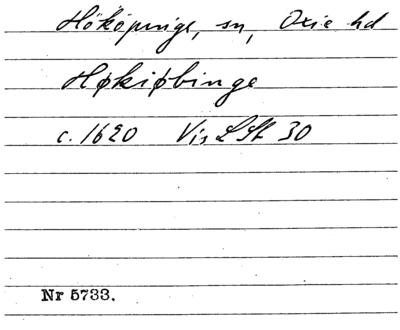 Hököpinge, sn, Oxie hd
Høkiøbinge
c. 1620 Vis LSt 30
Nr 5733.